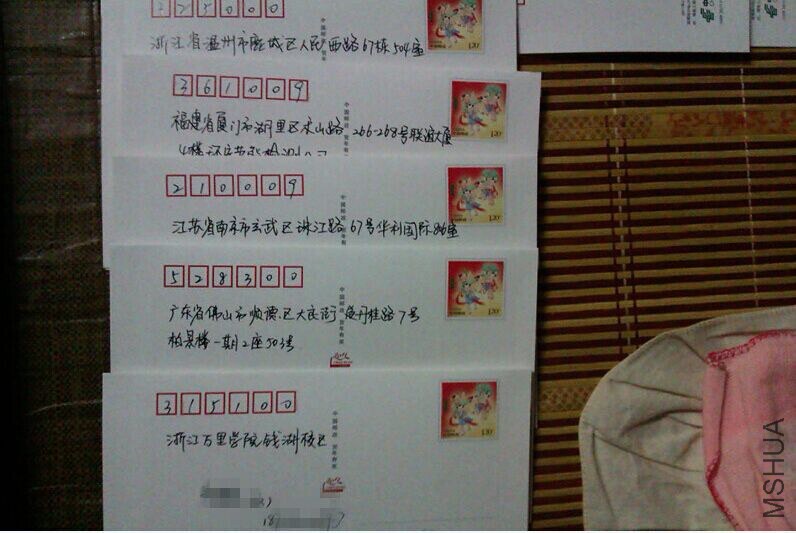 325000
浙江省温州市鹿城区人民西路67栋504室
1.20
361009
中国邮政 贺年有奖
福建省厦门市湖里区 山路 266-268号联谊大厦
4楼
1.20
210009
中国邮政 贺年有
江苏省南京市玄武区珠江路67号华利国际 室
1.20
528300
中国邮政 贺年有奖
广东省佛山市顺德区大良街 丹桂路7号
柏景楼一期2座503
1.20
315100
中国邮政 贺年有奖
浙江万里学院钱湖校区
1.20
MSHUA